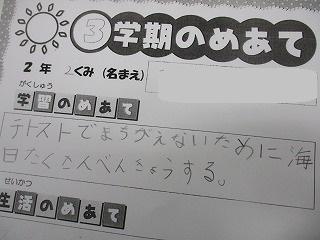 3学期のめあて
2年 2くみ (名まえ)
がくしゅう
学習のめあて
テトストでまちがえないために海
日たくさんべんきょうする。
せいかつ
生活のめあて